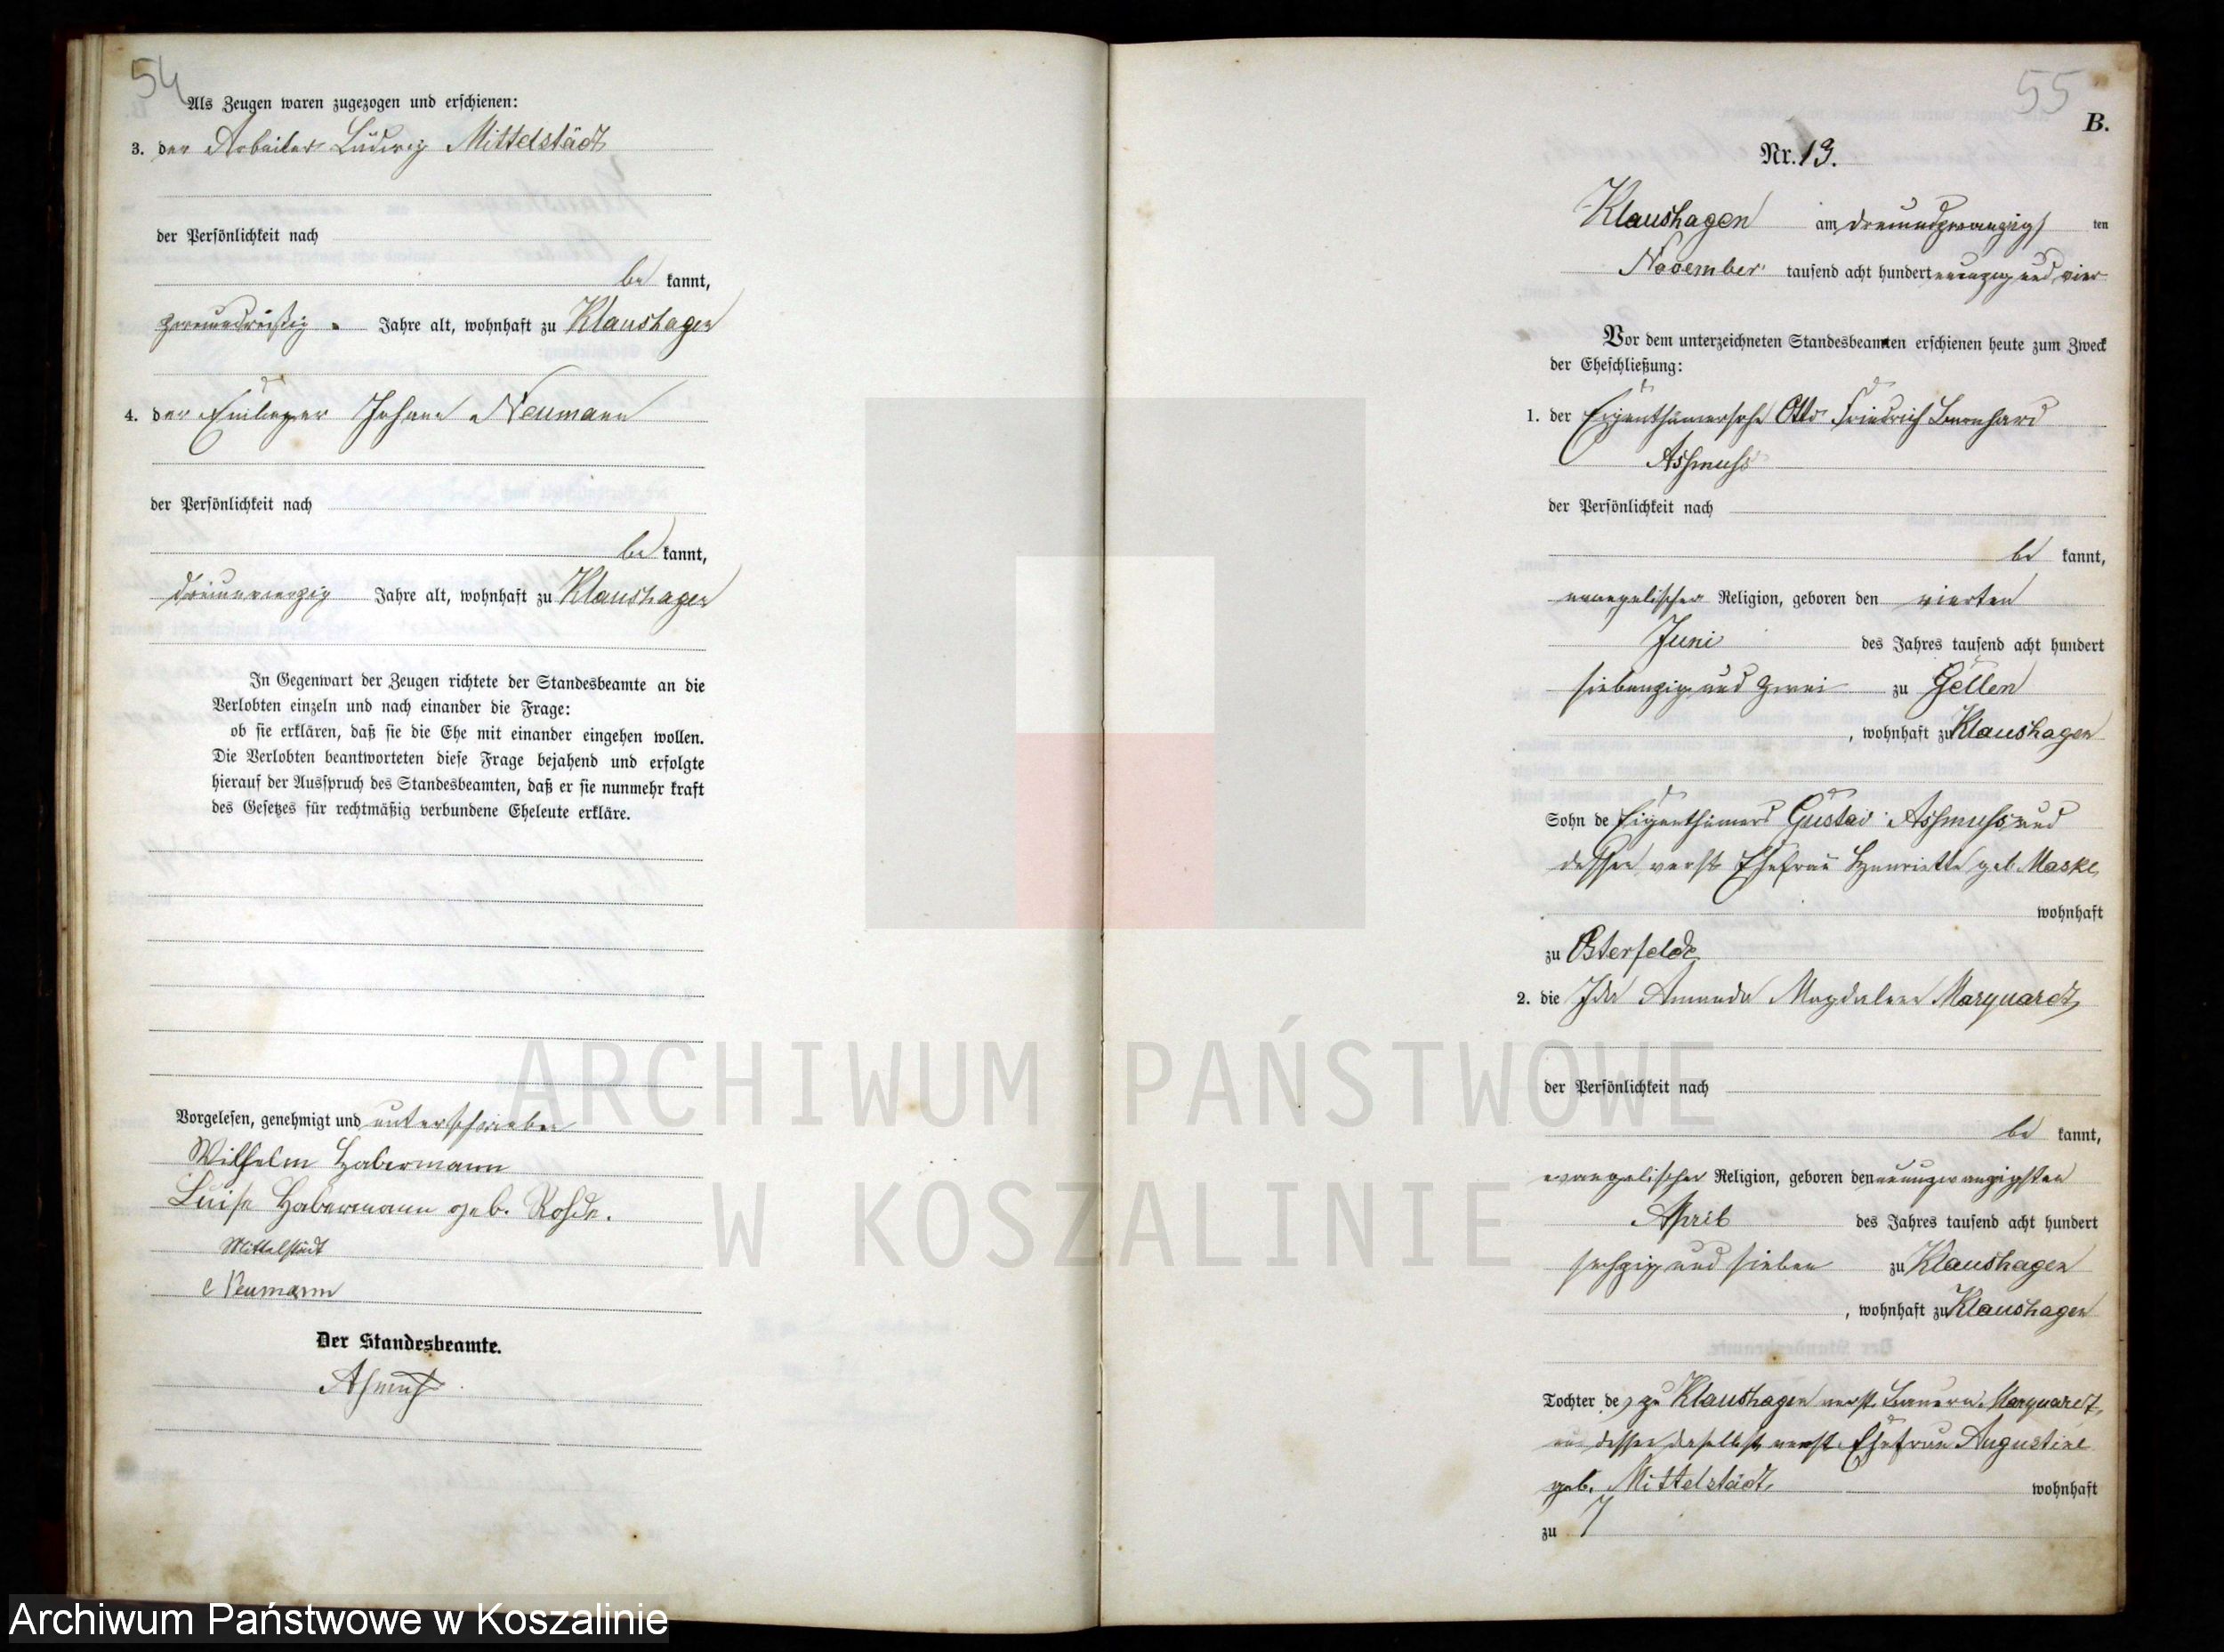 54
Als Zeugen waren zugezogen und erschienen:
3. der Arbeiter Ludwig Mittelstädt
der Persönlichkeit nach
be kannt,
zweiunddreißig Jahre alt, wohnhaft zu Klaushagen
4. der Einlieger Johann Neumann
der Persönlichkeit nach
be kannt,
Jahre alt, wohnhaft zu Klaushagen
In Gegenwart der Zeugen richtete der Standesbeamte an die
Verlobten einzeln und nach einander die Frage:
ob sie erklären, daß sie die Ehe mit einander eingehen wollen.
Die Verlobten beantworteten diese Frage bejahend und erfolgte
hierauf der Ausspruch des Standesbeamten, daß er sie nunmehr kraft
des Gesetzes für rechtmäßig verbundene Eheleute erkläre.
Vorgelesen, genehmigt und unterschrieben
Wilhelm Habermann
Luise Habermann geb. Rohde.
Mittelstädt
Neumann
Der Standesbeamte.
Asmuß
55
B.
Nr. 13.
Klaushagen am dreiundzwanzigs ten
November tausend acht hundert neunzig und vier
Vor dem unterzeichneten Standesbeamten erschienen heute zum Zweck
der Eheschließung:
1. der Eigenthümersohn Otto Friedrich Bernhard
Assmuss
der Persönlichkeit nach
be kannt,
evangelischer Religion, geboren den vierten
Juni des Jahres tausend acht hundert
siebenzig und zwei zu Gellen
, wohnhaft zu Klaushagen
Sohn de Eigenthümers Gustav Assmuss und
dessen verst. Ehefrau Henriette geb. Maske,
wohnhaft
zu Osterfelde
2. die Ida Amanda Magdalene Marquardt,
der Persönlichkeit nach
be kannt,
evangelischer Religion, geboren den neunzwanzigsten
April des Jahres tausend acht hundert
sechzig und sieben zu Klaushagen
, wohnhaft zu Klaushagen
Tochter des zu Klaushagen verst. Bauern Marquardt,
und dessen daselbst verst. Ehefrau Augustine
geb. Mittelstädt, wohnhaft
zu
ARCHIWUM PAŃSTWOWE
W KOSZALINIE
Archiwum Państwowe w Koszalinie